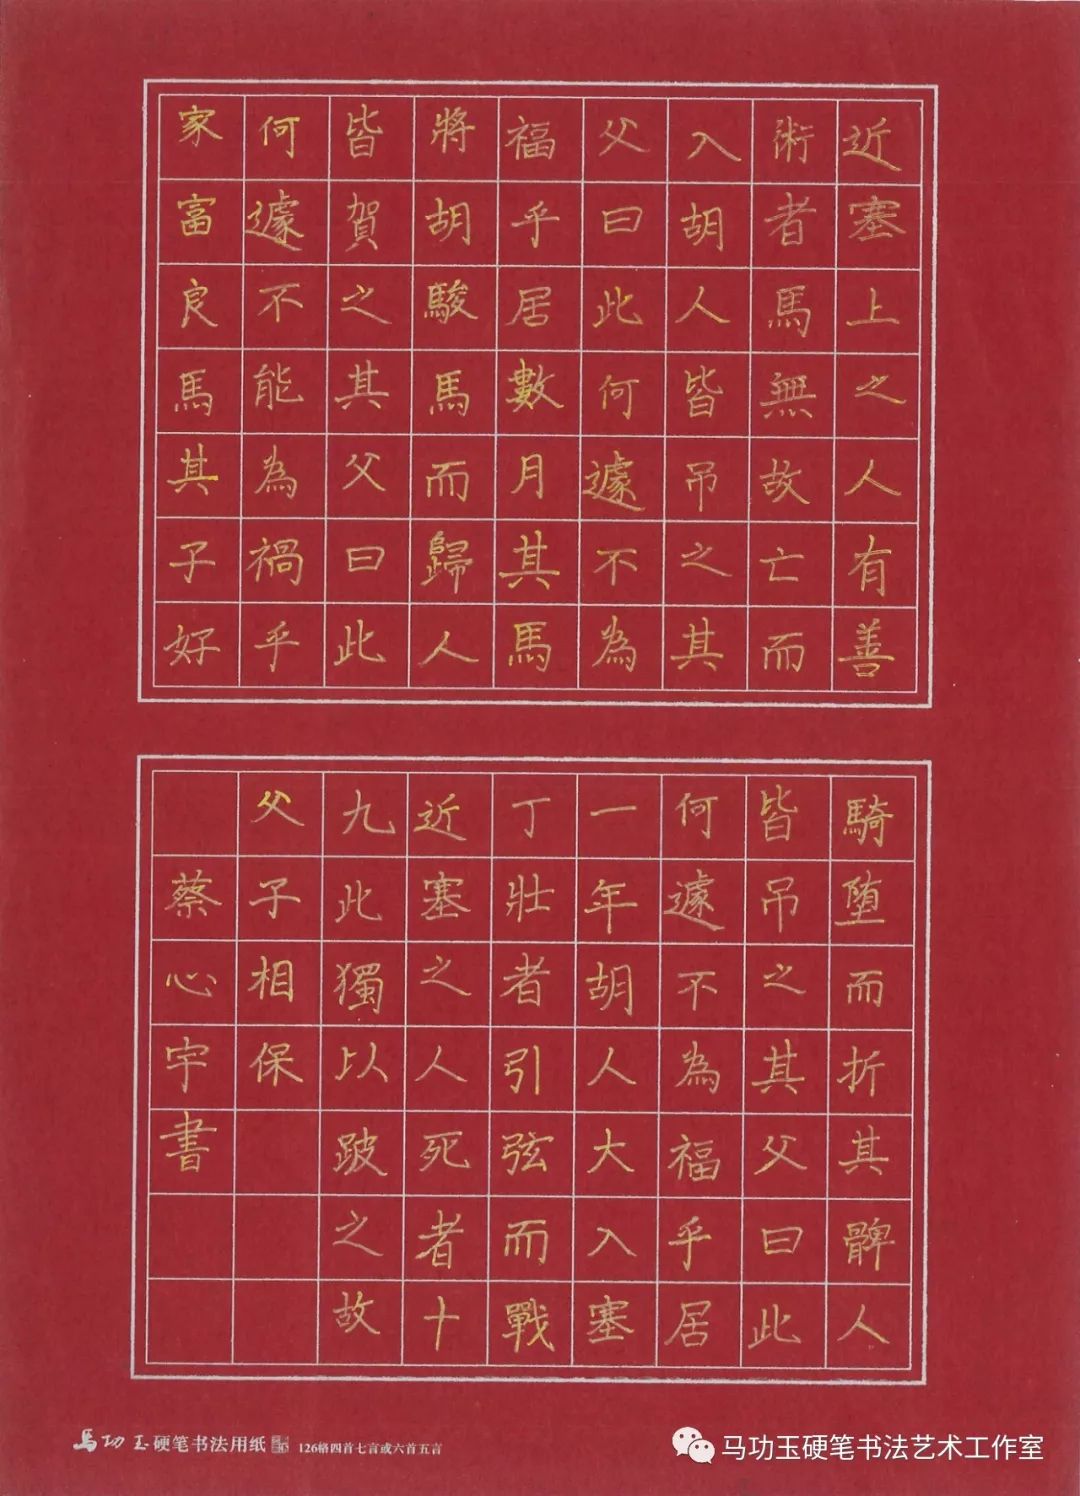 近塞上之人有善
術者馬無故亡而
入胡人皆吊之其
父曰此何遽不為
福乎居數月其馬
將胡駿馬而歸人
皆賀之其父曰此
何遽不能為禍乎
家富良馬其子好
騎墮而折其髀人
皆吊之其父曰此
何遽不為福乎居
一年胡人大入塞
丁壯者引弦而戰
近塞之人死者十
九此獨以跛之故
父子相保
蔡心宇書
马功玉硬笔书法用纸
126格四首七言或六首五言
马功玉硬笔书法艺术工作室